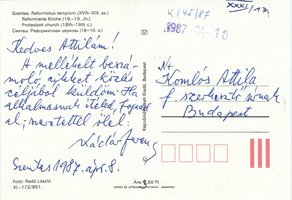 Szentes, Református templom (XVIII-XIX. sz.)
Reformierte Kirche (18.-19. Jh.)
Protestant church (18th-19th c.)
Сентеш, Реформатская церковь (18-19 в.)
K/45/87
XXXI/17
1987
Kedves Attilám!
A mellékelt beszá-
moló cikket közlés
céljából küldöm. Ha
alkalmasnak ítéled, fogadd
el; szeretettel ölel:
Szentes, 1987. ápr. 8.
Komlós Attila
f. szerkesztő úrnak
Budapest
Képzőművészeti Kiadó, Budapest
Fotó: Radó László
XI.-172/851.
Ára: 2,50 Ft